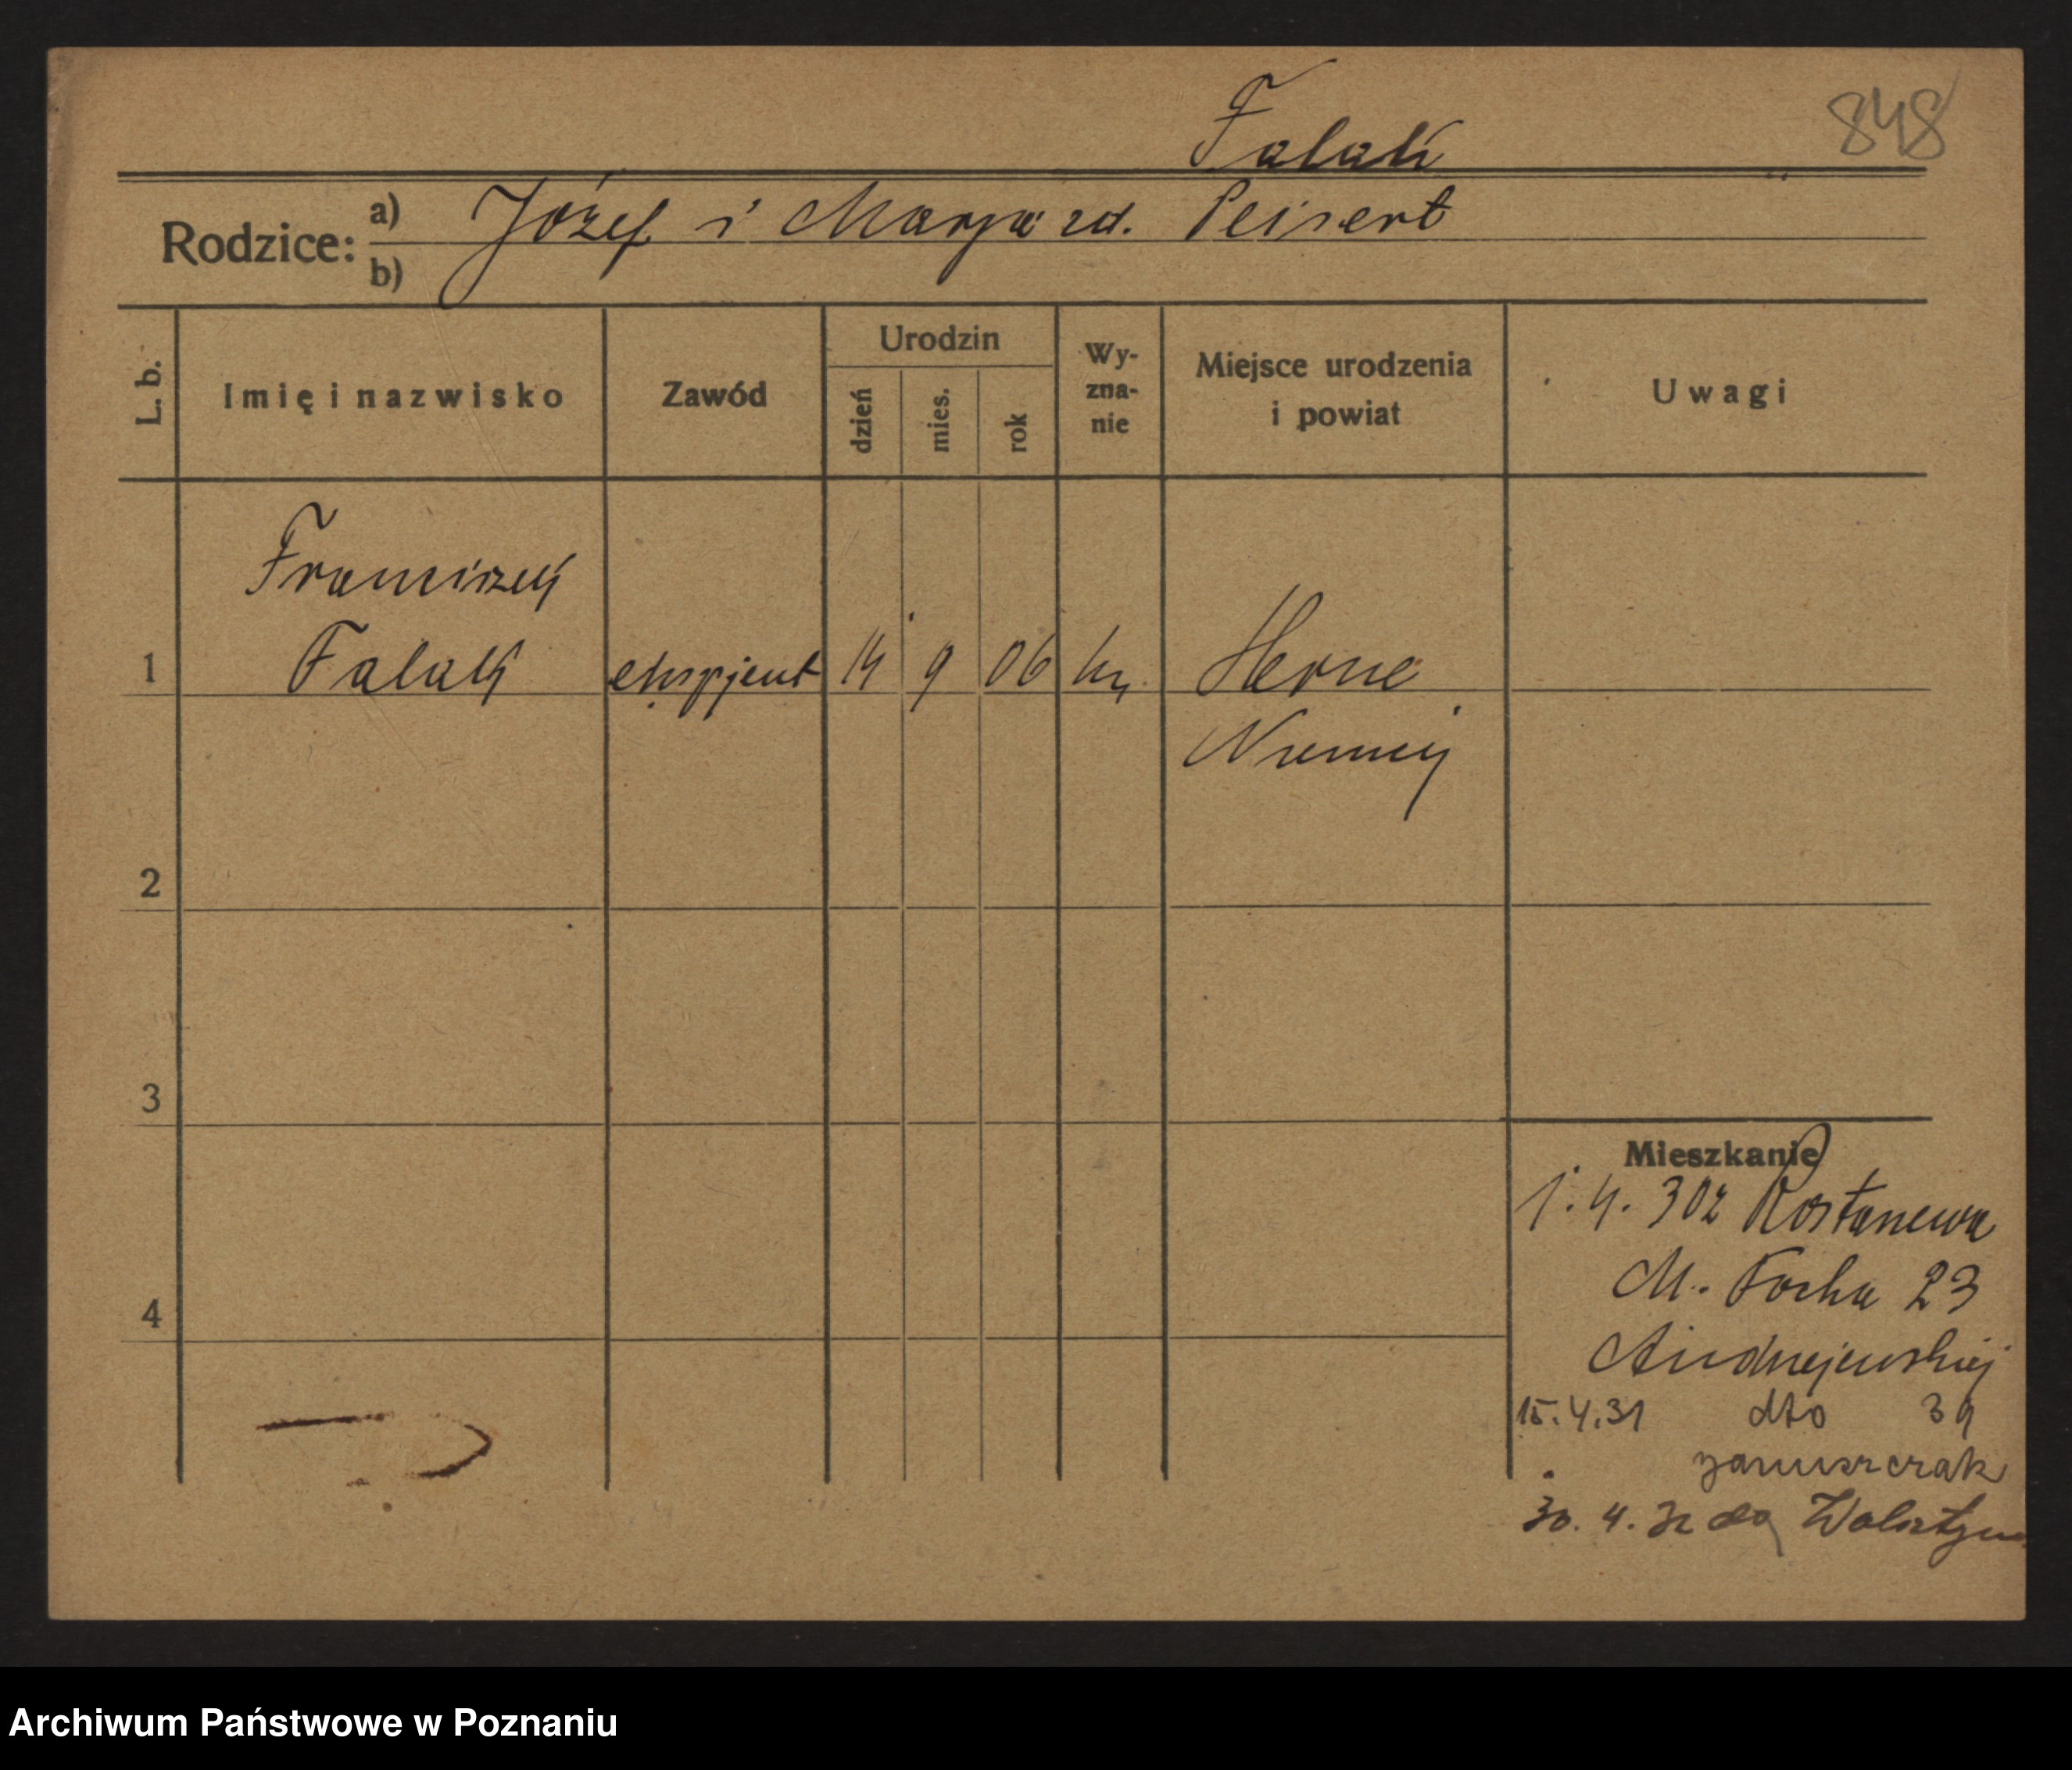 848
Falak
Rodzice: a) Józef i Marja zd. Peisert
b)
L. b. Imię i nazwisko Zawód Urodzin dzień mies. rok Wy-zna-nie Miejsce urodzenia i powiat Uwagi
Franciszek
1 Falak ekspjent 14 9 06 Herne
Niemcy
2
3
Mieszkanie
1.4.30 z
M. Focha 23
4
15.4.31 dto 39
30.4.32 do Wolsztyna
Archiwum Państwowe w Poznaniu